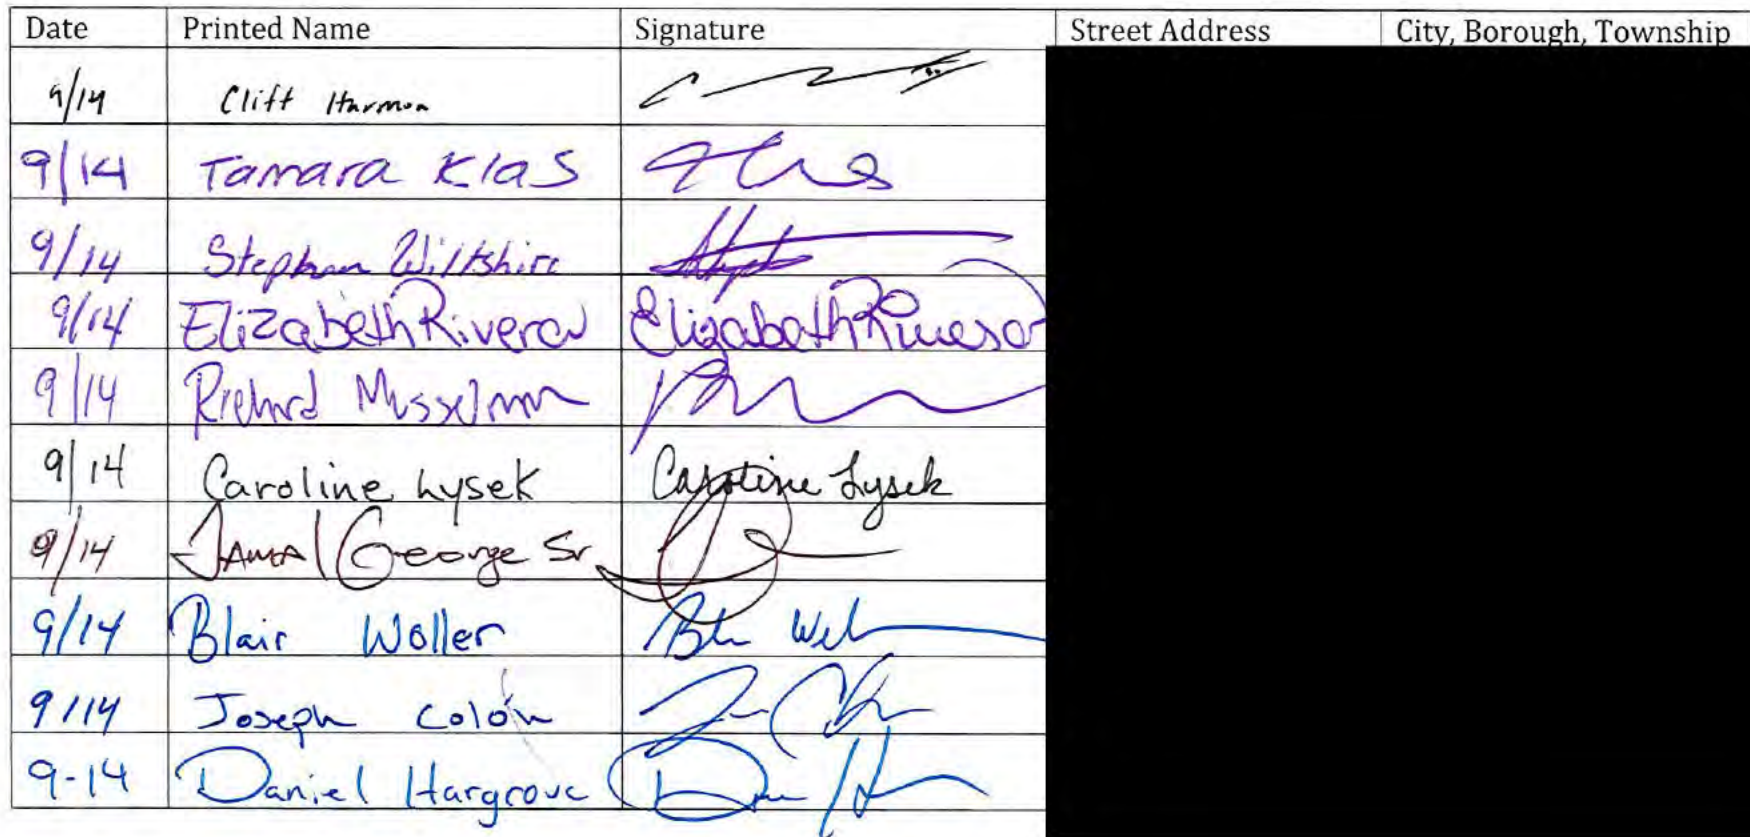 Date Printed Name Signature Street Address City, Borough, Township
9/14 Cliff Harmon
9/14 Tamara Klas
9/14 Stephan Wiltshire
9/14 Elizabeth Rivera Elizabeth Rivera
9/14 Richard Musselman
9/14 Caroline Lysek Caroline Lysek
9/14 Jamal George Sr
9/14 Blair Woller
9/14 Joseph Colón
9-14 Daniel Hargrove